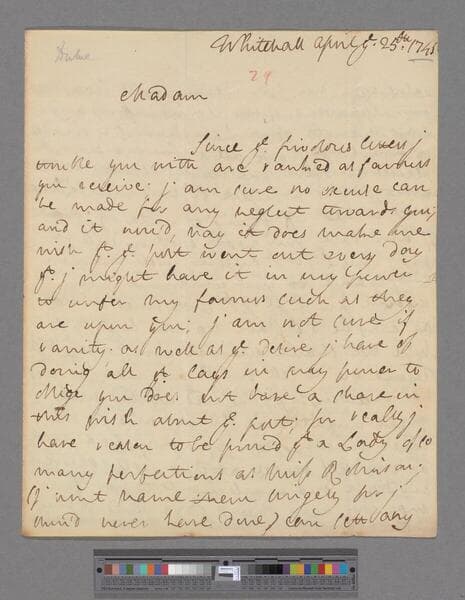 Whitehall April ye. 25th. 1745
29
Madam
Since ye. frivolous Letters j
trouble you with are ranked as favours
you receive: j am sure no excuse can
be made for any neglect towards you;
and it wou'd, nay it does make me
wish yt. ye. post went out every Day
yt. j might have it in my power
to confer my favours such as they
are upon you; j am not sure if
vanity. as well as ye. desire j have of
doing all yt lays in my power to
oblige you Does not bare a share in
this wish about ye post; for really j
have reason to be proud yt a Lady of so
many perfections as Miss Robinson;
(j wont name them singely for j
shou'd never have Done) can sett any